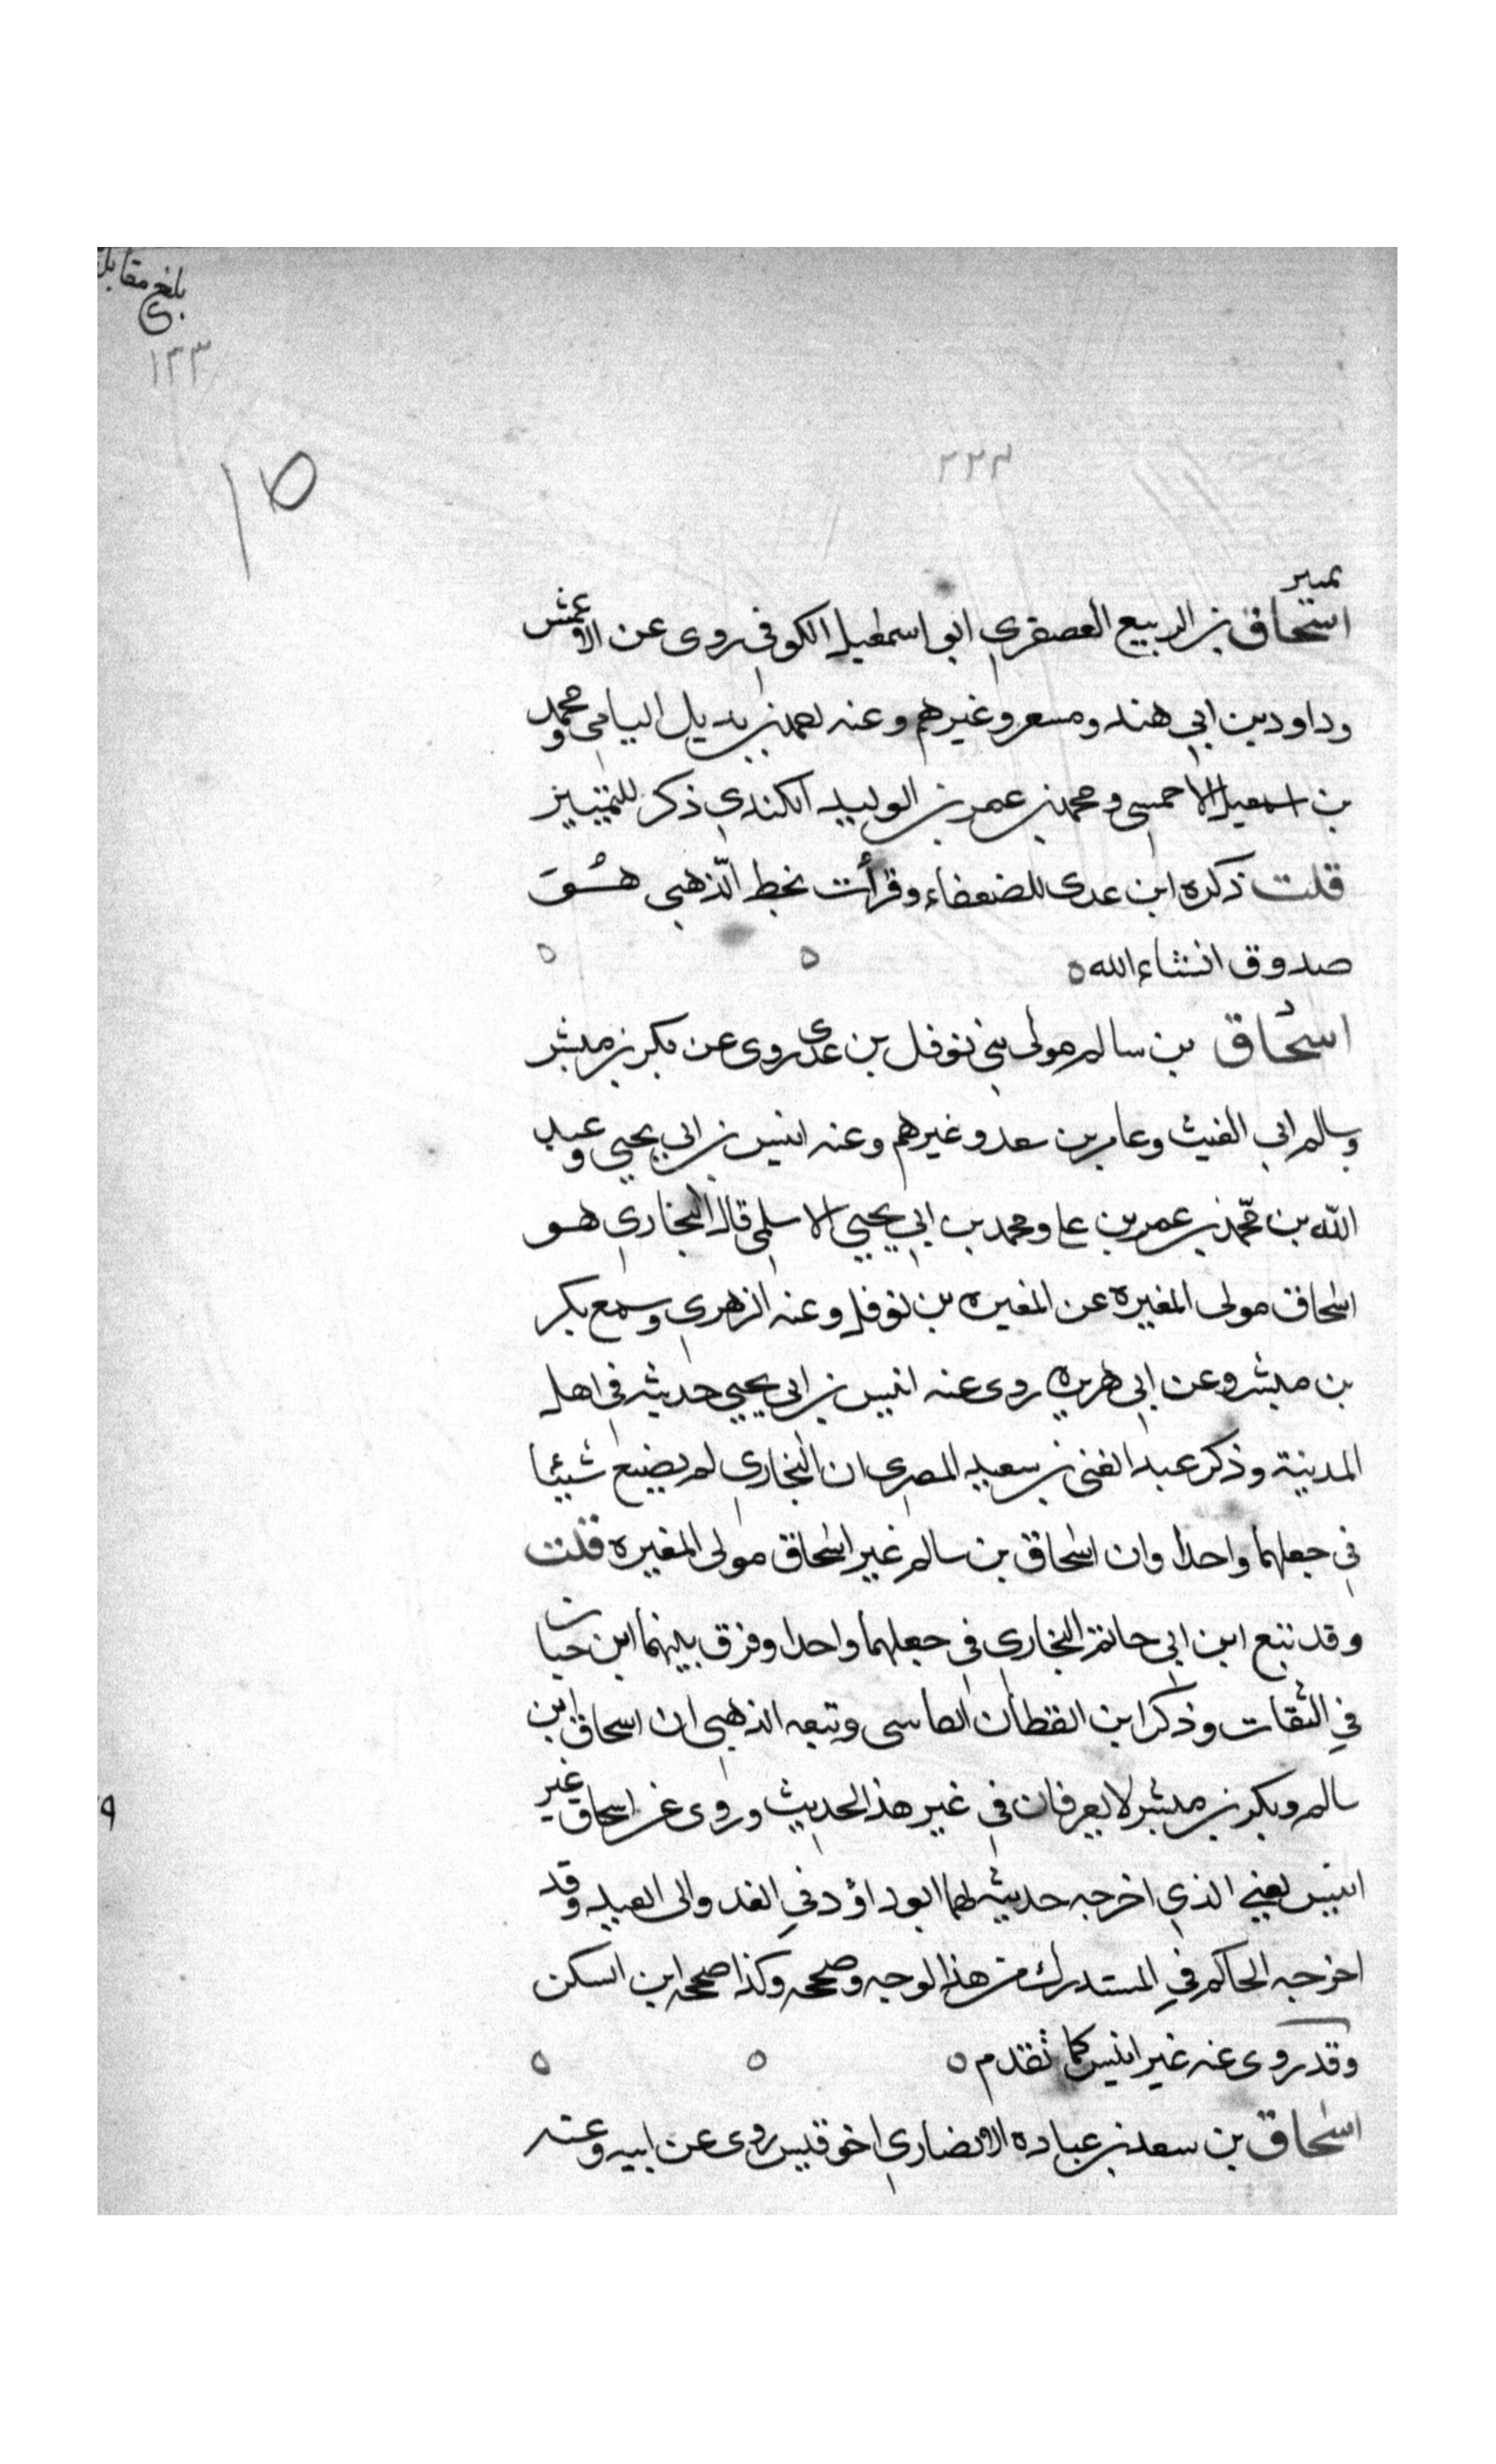 بلغ مقابل
١٣٣
٢٢٣
١٥
تمييز
اسحاق بن الربيع العصفري ابو اسمعيل الكوفي روى عن الاعمش
وداود بن ابي هند ومسعر وغيرهم وعنه احمد بن بديل اليامي ومحمد
بن اسمعيل الاحمسي ومحمد بن عمر بن الوليد الكندي ذكر للتمييز
قلت ذكره ابن عدى للضعفاء وقرأت بخط الذهبى هو
صدوق انشاء الله
اسحاق بن سالم مولى بني نوفل بن عدى روى عن بكر بن مبشر
وسالم ابي الغيث وعامر بن سعد وغيرهم وعنه انيس بن ابي يحيى وعبد
الله بن محمد بن عمر بن على ومحمد بن ابي يحيى الاسلمى قال البخاري هو
اسحاق مولى المغيرة عن المغيره بن نوفل وعنه الزهري وسمع بكر
بن مبشر وعن ابي هريره روى عنه انيس بن ابي يحيى حديثه في اهل
المدينة وذكر عبد الغنى بن سعيد المصري ان البخاري لم يصنع شيئا
في جعلهما واحدا وان اسحاق بن سالم غير اسحاق مولى المغيره قلت
وقد تبع ابن ابي حاتم البخاري في جعلهما واحدا وفرق بينهما ابن حبان
في الثقات وذكر ابن القطان الفاسى وتبعه الذهبى ان اسحاق ابن
سالم وبكر بن مبشر لا يعرفان في غير هذا الحديث وروى عن اسحاق غير
انيس يعني الذي اخرجه حديثه لهما ابو داؤد في الغد والى العيد وقد
اخرجه الحاكم في المستدرك من هذا الوجه وصححه وكذا صححه ابن السكن
وقد روى عنه غير انيس كما تقدم
اسحاق بن سعد بن عباده الانصاري اخو قيس روى عن ابيه وعنه